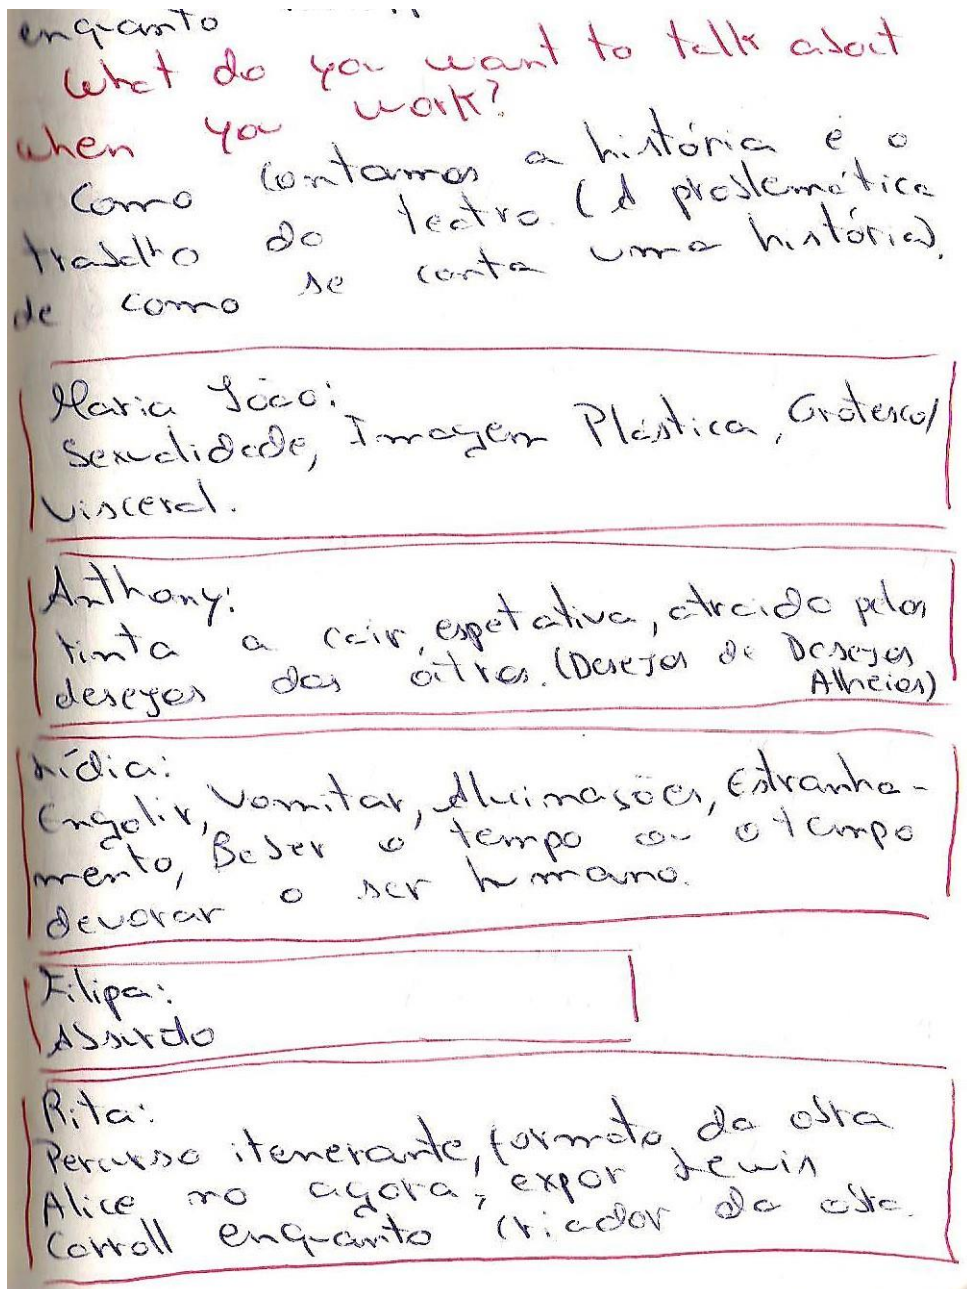 enquanto
What do you want to talk about
when you work?
Como contamos a história é o
trabalho do teatro. (A problemática
de como se conta uma história).
Maria João:
Sexualidade, Imagem Plástica, Grotesco/
visceral.
Anthony:
tinta a cair, espetativa, atraido pelos
desejos dos outros. (Desejos de Desejos
Alheios)
Lídia:
Engolir, Vomitar, Alucinações, Estranha-
mento, Beber o tempo ou o tempo
devorar o ser humano.
Filipa:
Absurdo
Rita:
Percurso itenerante, formato da obra
Alice no agora, expor Lewis
Carroll enquanto criador da obra.